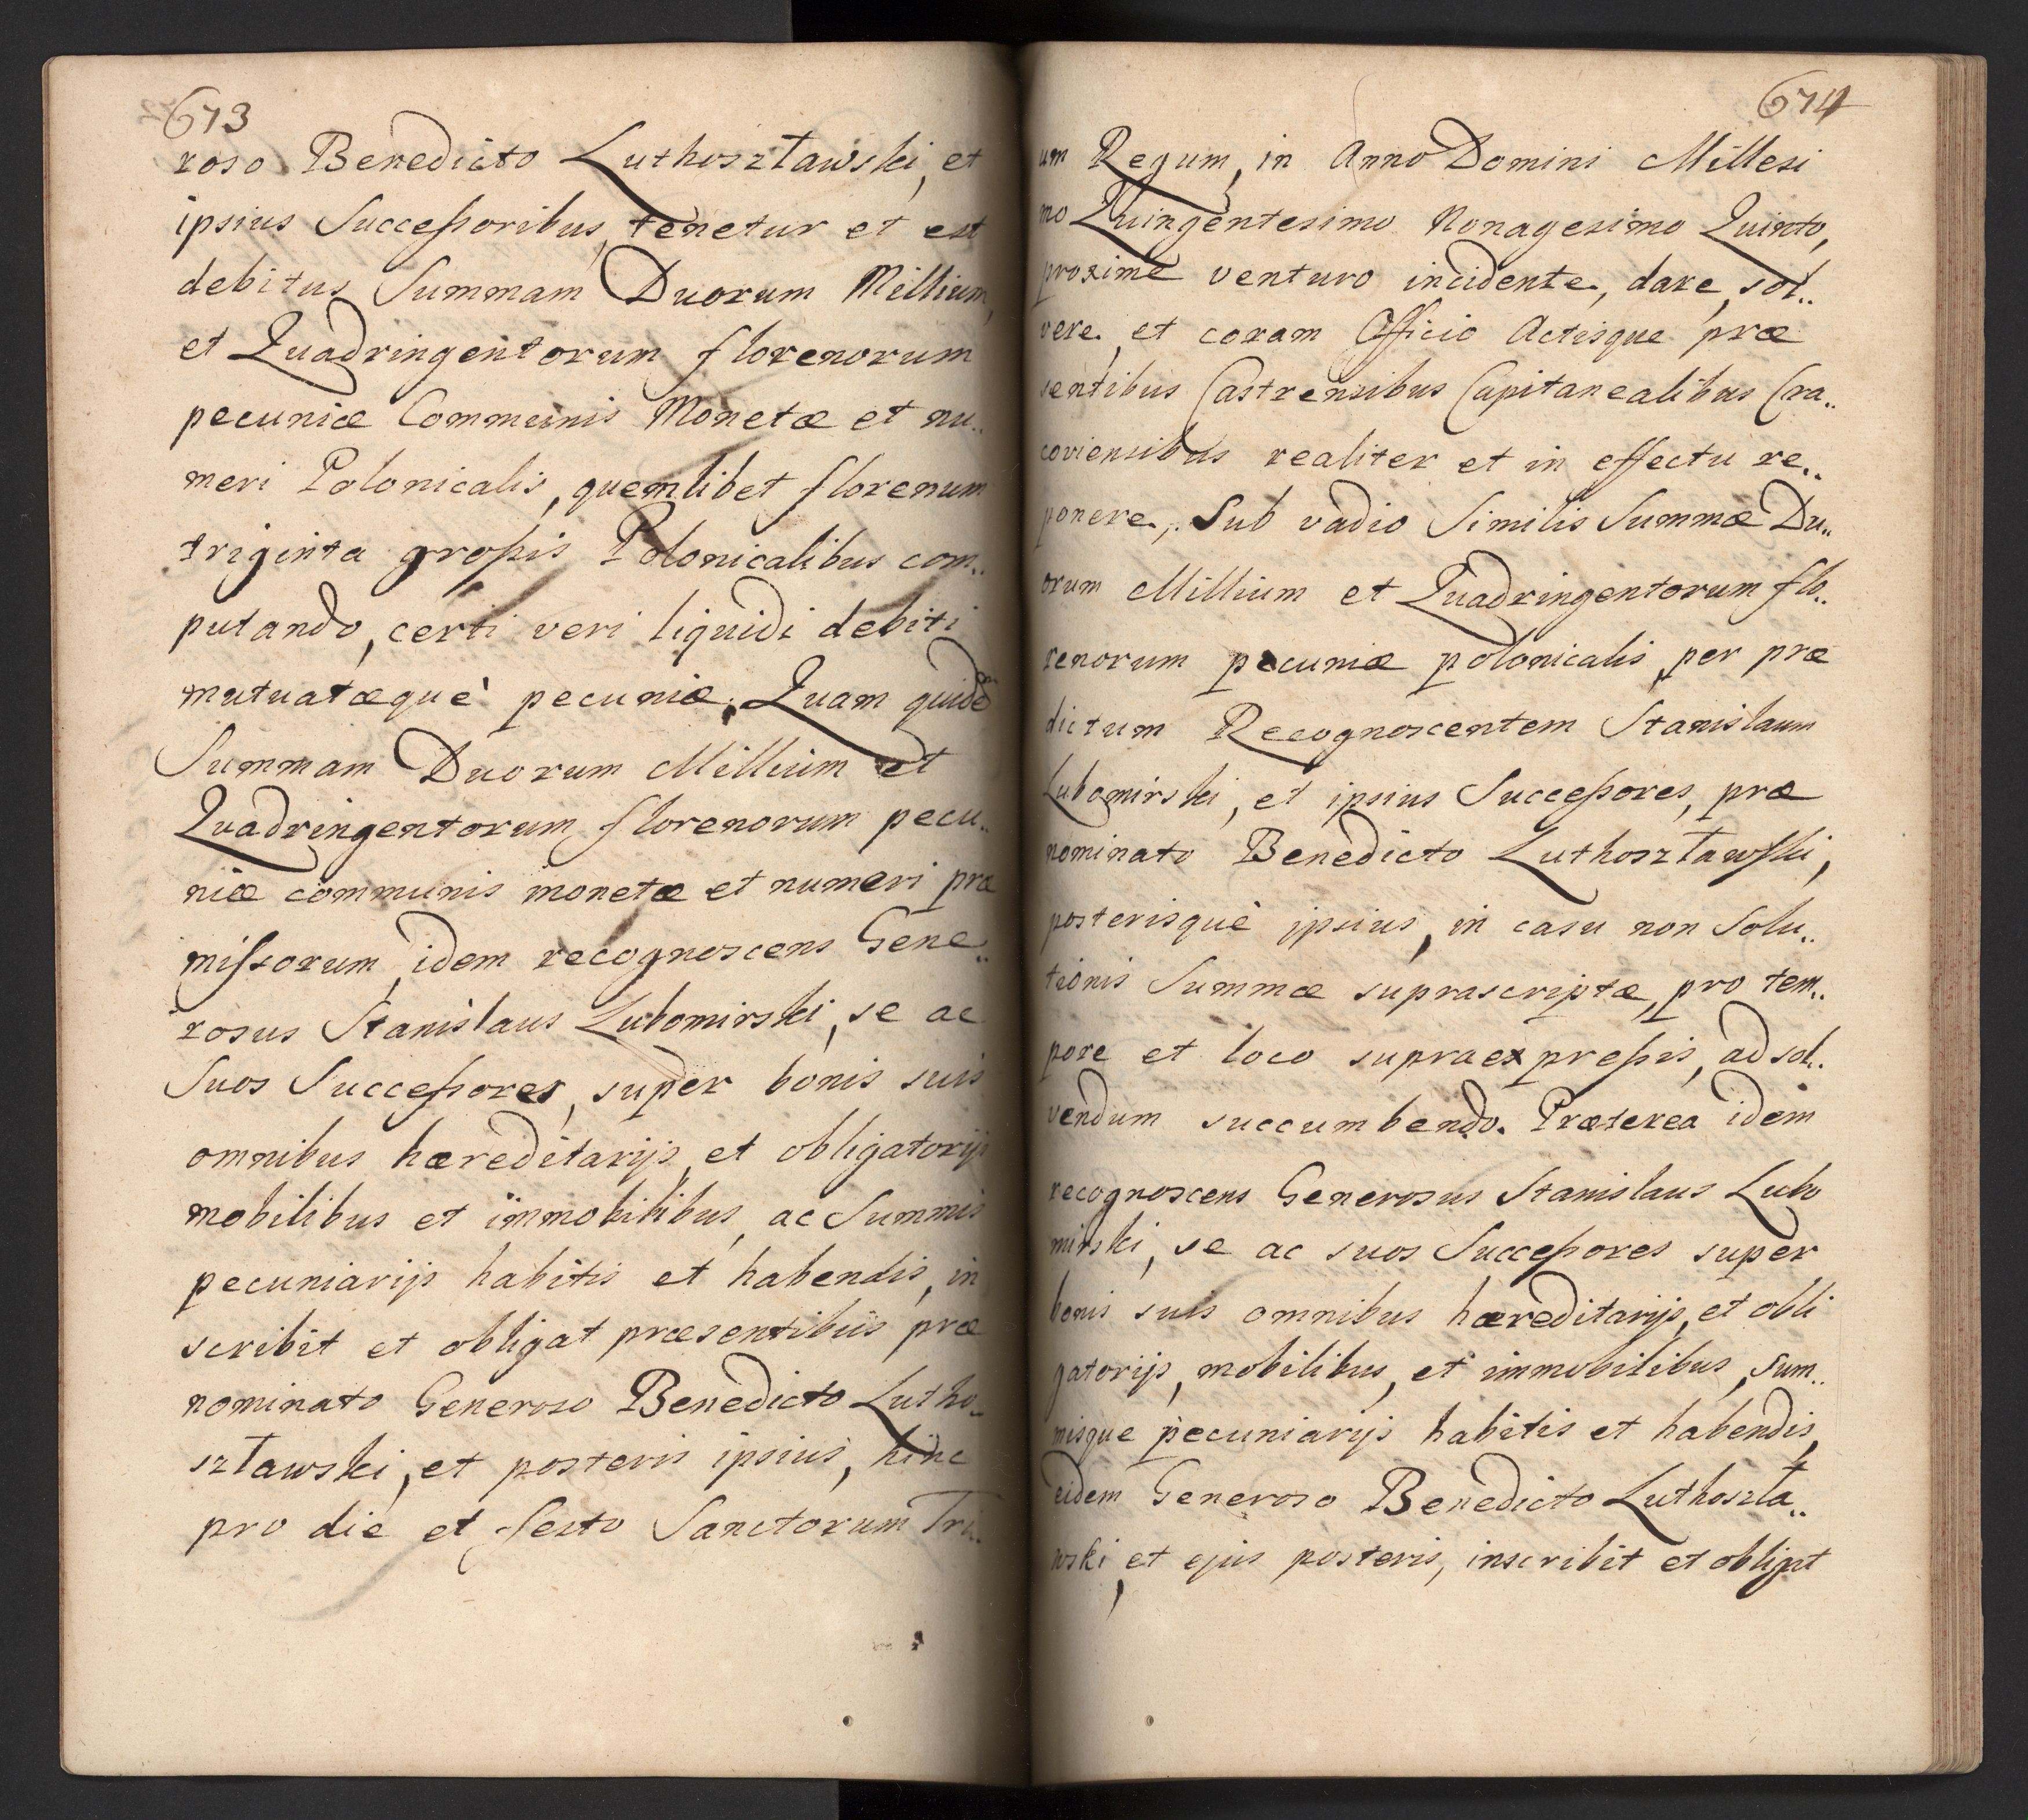 673
roso Benedicto Luthoszławski, et
ipsius Successoribus, tenetur et est
debitus Summam Duorum Millium,
et Quadringentorum florenorum
pecuniæ Communis Monetæ et nu..
meri Polonicalis, quemlibet florenum
triginta grossis Polonicalibus com..
putando, certi veri liquidi debiti
mutuatæquè pecuniæ. Quam quidē
Summam Duorum Millium et
Quadringentorum florenorum pecu..
niæ communis monetæ et numeri præ
missorum, idem recognoscens Gene..
rosus Stanislaus Lubomirski, se ac
Suos Successores, super bonis suis
omnibus hæreditarijs, et obligatorijs
mobilibus et immobilibus, ac Summis
pecuniarijs habitis et habendis, in
scribit et obligat præsentibus præ
nominato Generoso Benedicto Lutho..
szławski, et posteris ipsius, hinc
pro die et festo Sanctorum Tri..
674
um Regum, in Anno Domini Millesi
mo Quingentesimo Nonagesimo Quinto,
proximè venturo incidente, dare, sol..
vere, et coram Officio Actisque præ
sentibus Castrensibus Capitanealibus Cra..
coviensibus realiter et in effectu re..
ponere, Sub vadio Similis Summæ Du..
orum Millium et Quadringentorum flo..
renorum pecuniæ polonicalis, per præ
dictum Recognoscentem Stanislaum
Lubomirski, et ipsius Successores, præ
nominato Benedicto Luthoszławski,
posterisquè ipsius, in casu non Solu..
tionis Summæ suprascriptæ, pro tem..
pore et loco supraexpressis, ad sol..
vendum succumbendo. Præterea idem
recognoscens Generosus Stanislaus Lubo
mirski, se ac suos Successores super
bonis suis omnibus hæreditarijs, et obli
gatorijs, mobilibus, et immobilibus, Sum..
misque pecuniarijs habitis et habendis,
eidem Generoso Benedicto Luthoszła..
wski, et ejus posteris, inscribit et obligat